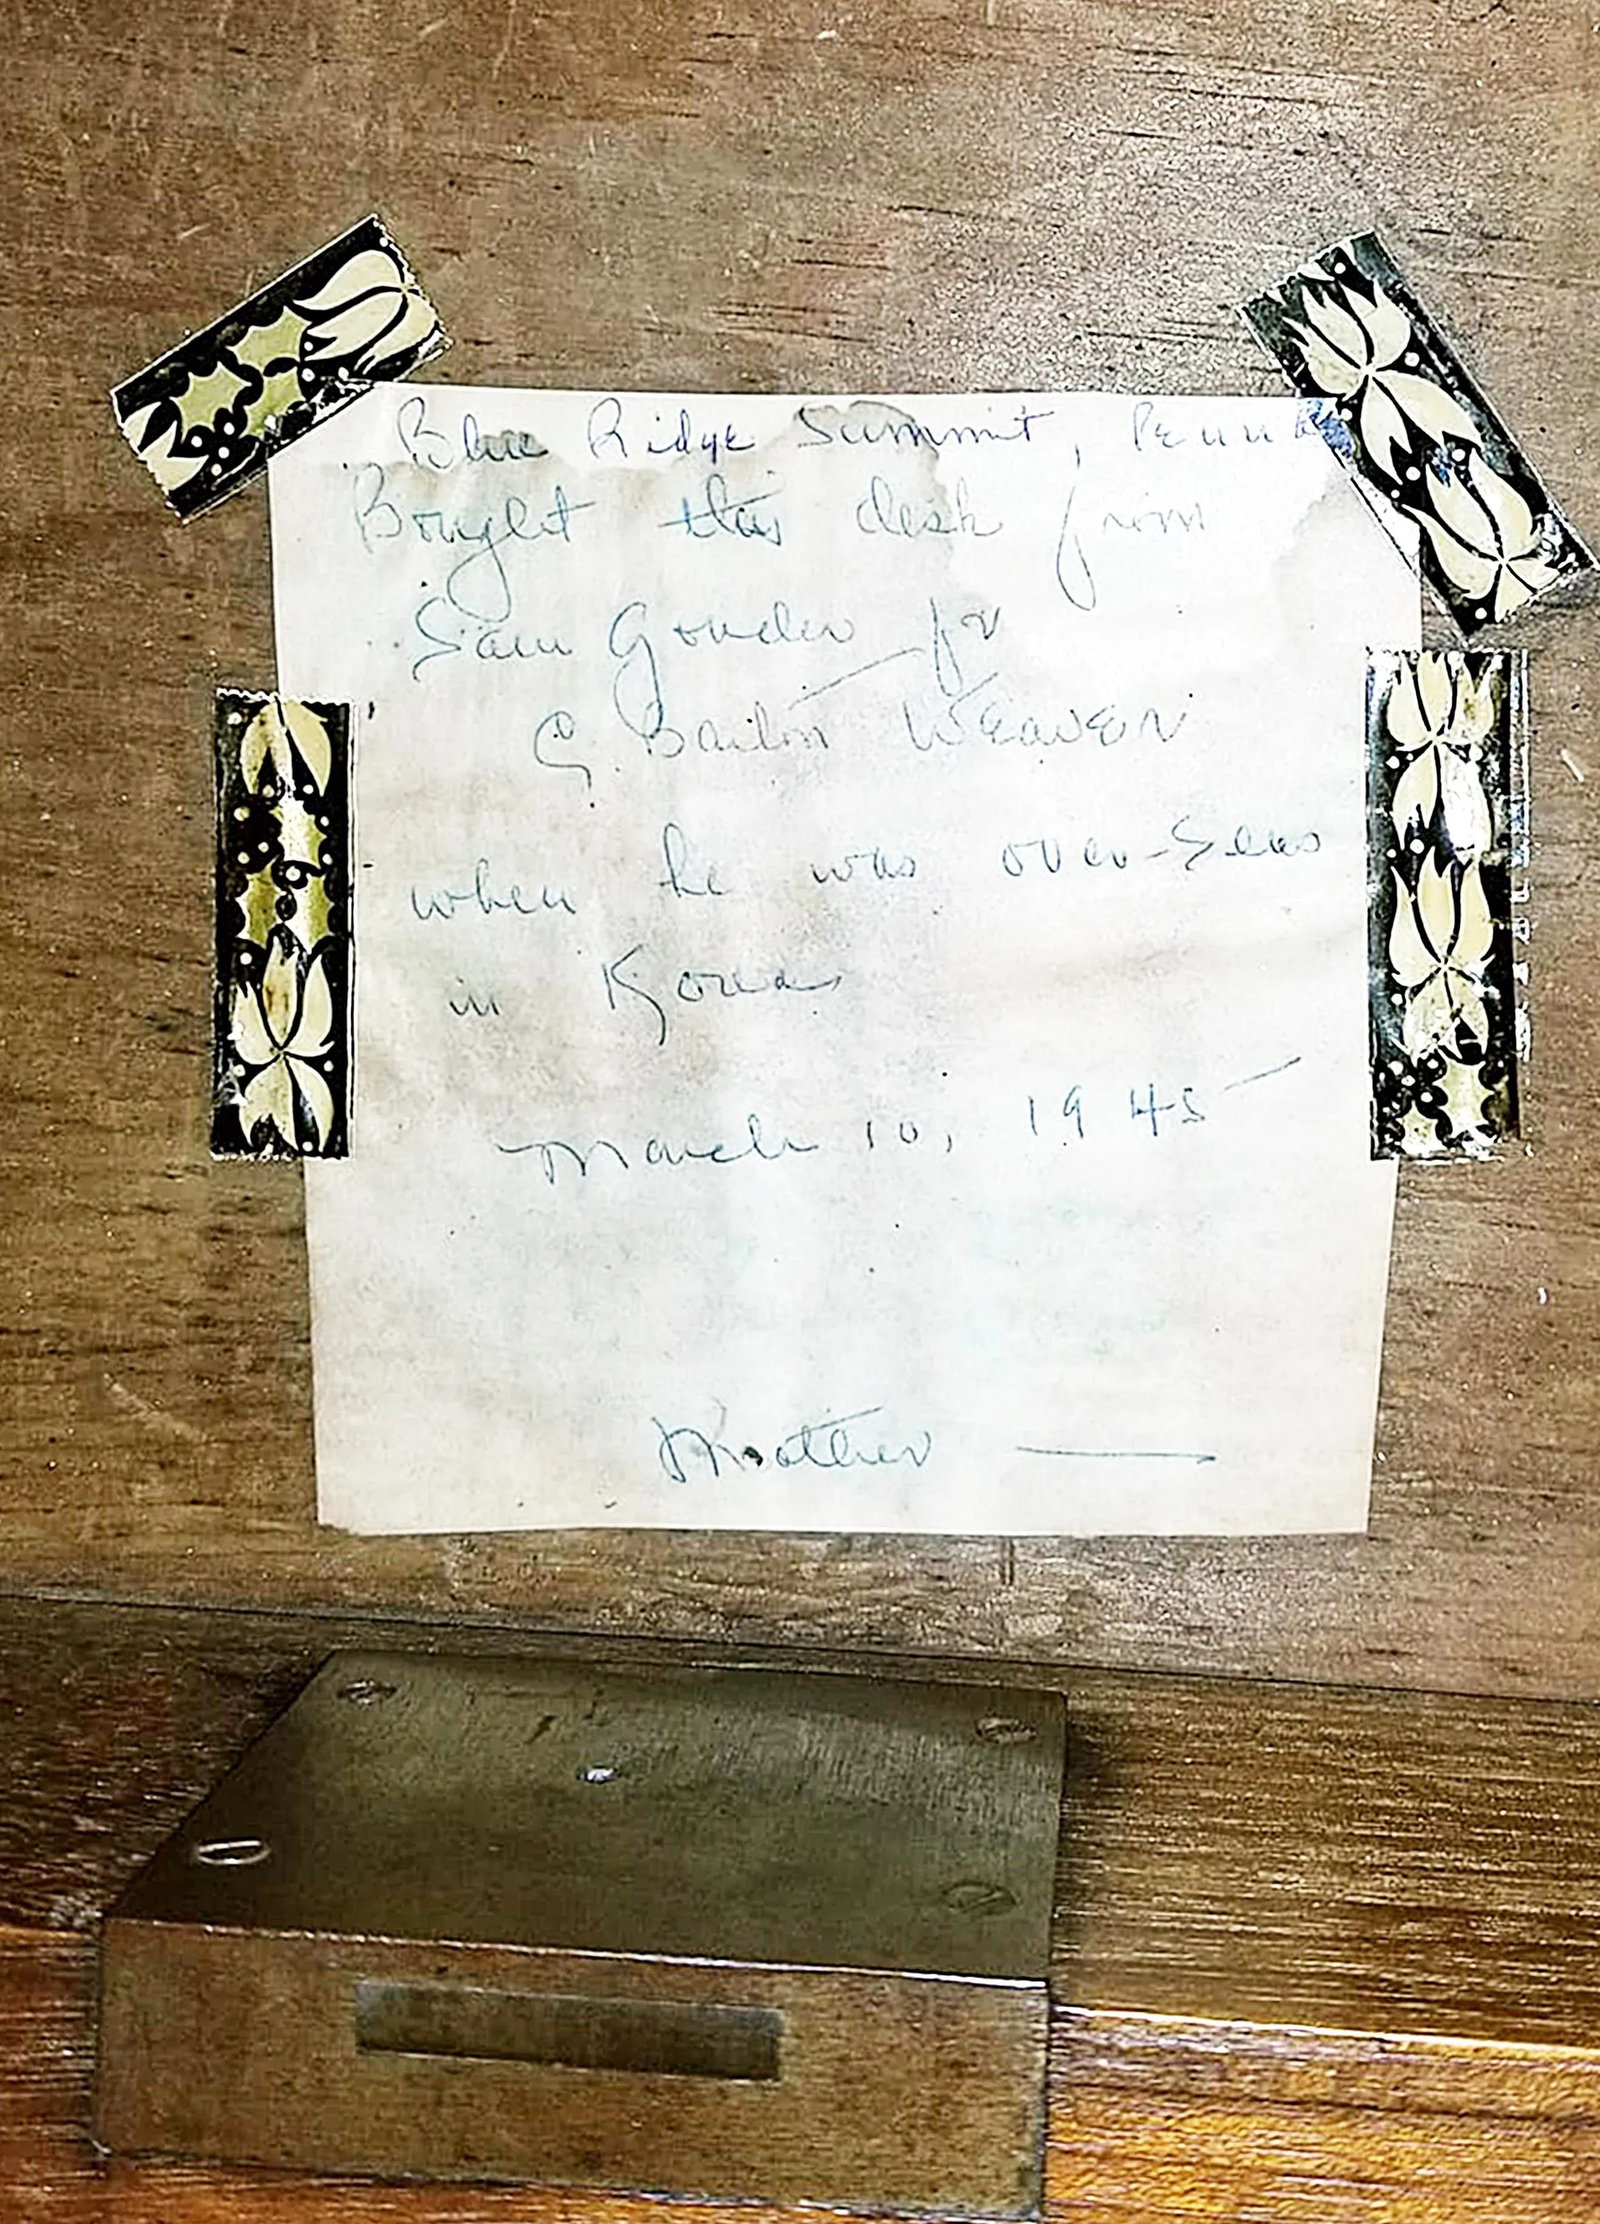 Blue Ridge Summit, Penna
Bought this desk from
Sam Gonder for
C. Weaver
when he was over-seas
in Korea
March 10, 1945
Mother —